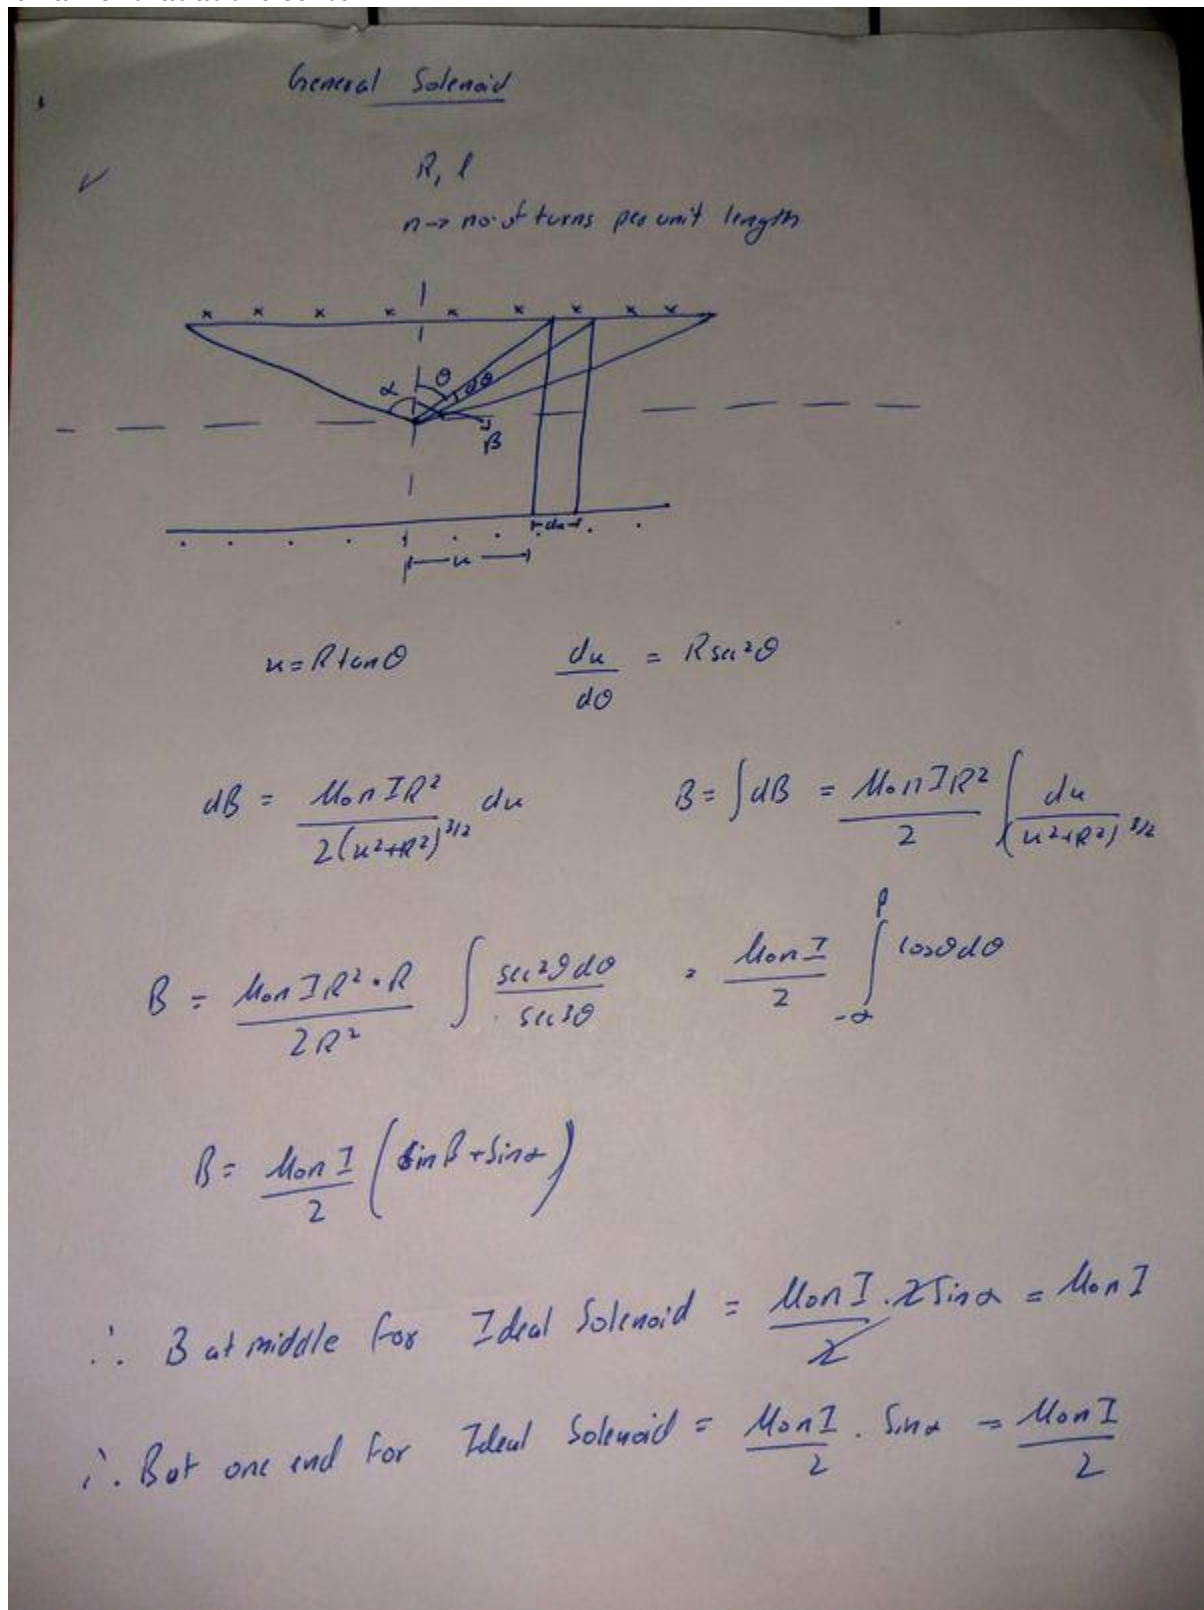 General Solenoid
R, l
n → no. of turns per unit length
x x x x x x x x x
α θ dθ
β
dx
x
x = R tanθ dx/dθ = R sec²θ
dB = μ₀nIR²/2(x²+R²)^3/2 dx B = ∫dB = μ₀nIR²/2 ∫ dx/(x²+R²)^3/2
B = μ₀nIR²·R/2R² ∫ sec²θdθ/sec3θ = μ₀nI/2 ∫_-α^β cosθdθ
B = μ₀nI/2 (Sinβ + Sinα)
∴ B at middle for Ideal Solenoid = μ₀nI/2 . 2Sinα = μ₀nI
∴ B at one end for Ideal Solenoid = μ₀nI/2 . Sinα = μ₀nI/2